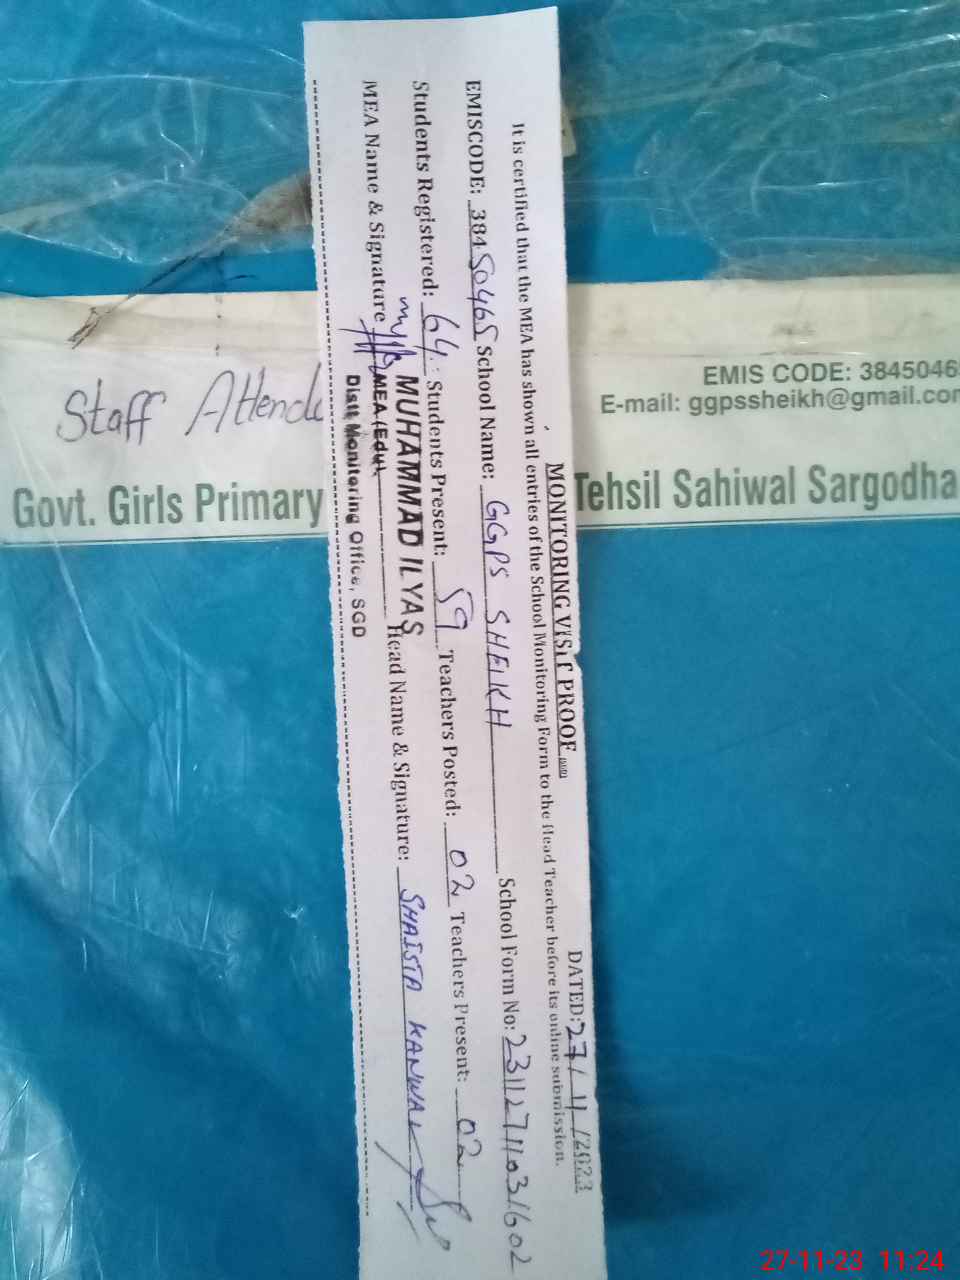 MONITORING VISIT PROOF
DATED: 27/11/2023
It is certified that the MEA has shown all entries of the School Monitoring Form to the Head Teacher before its online submission.
EMISCODE: 38450465 School Name: GGPS SHEIKH School Form No: 23112711031602
Students Registered: 64 Students Present: 59 Teachers Posted: 02 Teachers Present: 02
MEA Name & Signature Head Name & Signature: SHAISTA KANWAL
MUHAMMAD ILYAS
MEA (Edu)
Distt Monitoring Office, SGD
Staff Attend
EMIS CODE: 3845046
E-mail: ggpssheikh@gmail.com
Govt. Girls Primary Tehsil Sahiwal Sargodha
27-11-23 11:24